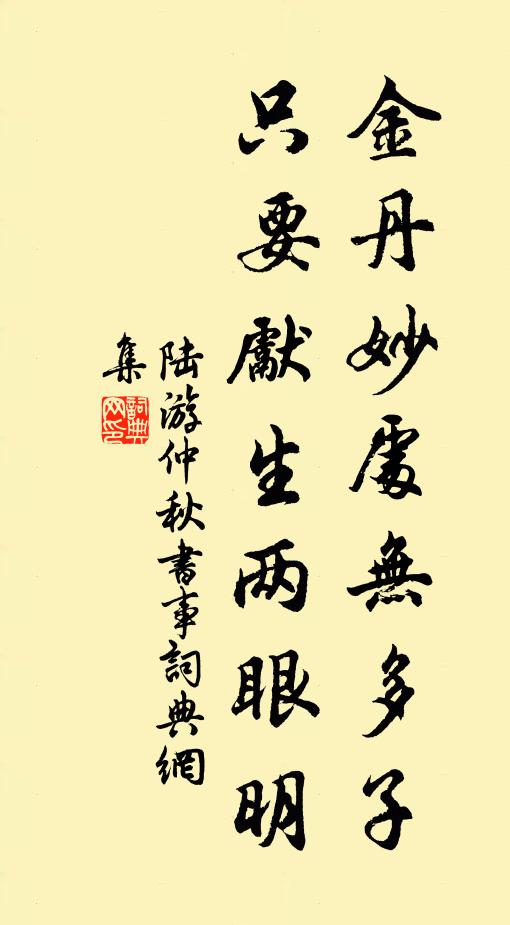 金丹妙處無多子
只要獻生两眼明
陆游仲秋書事詞典網
集
詞典網印